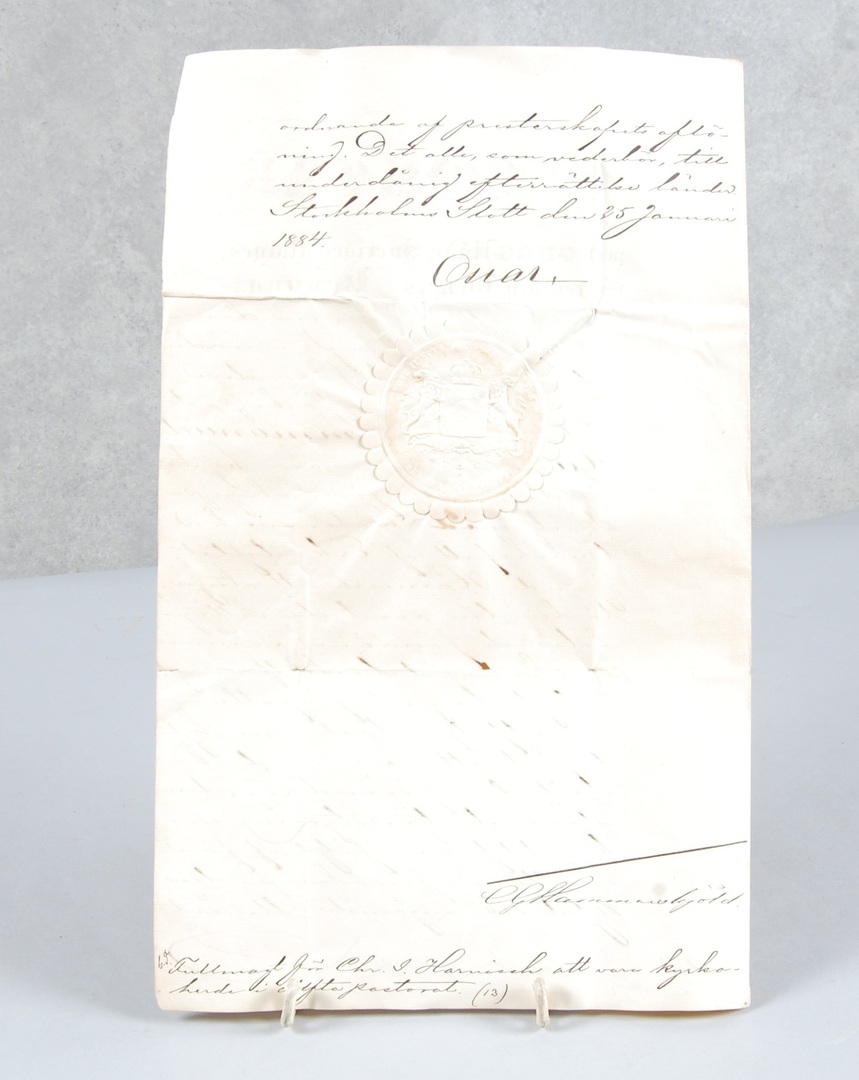 ordnande af presterskapets aflö-
ning. Det alle, som vederbör, till
underdånig efterrättelse länder
Stockholms Slott den 25 Januari
1884.
Oscar
C G Hammarskjöld.
Fullmagt för Chr. I. Harnisch att vara kyrko-
herde i pastorat. (13)